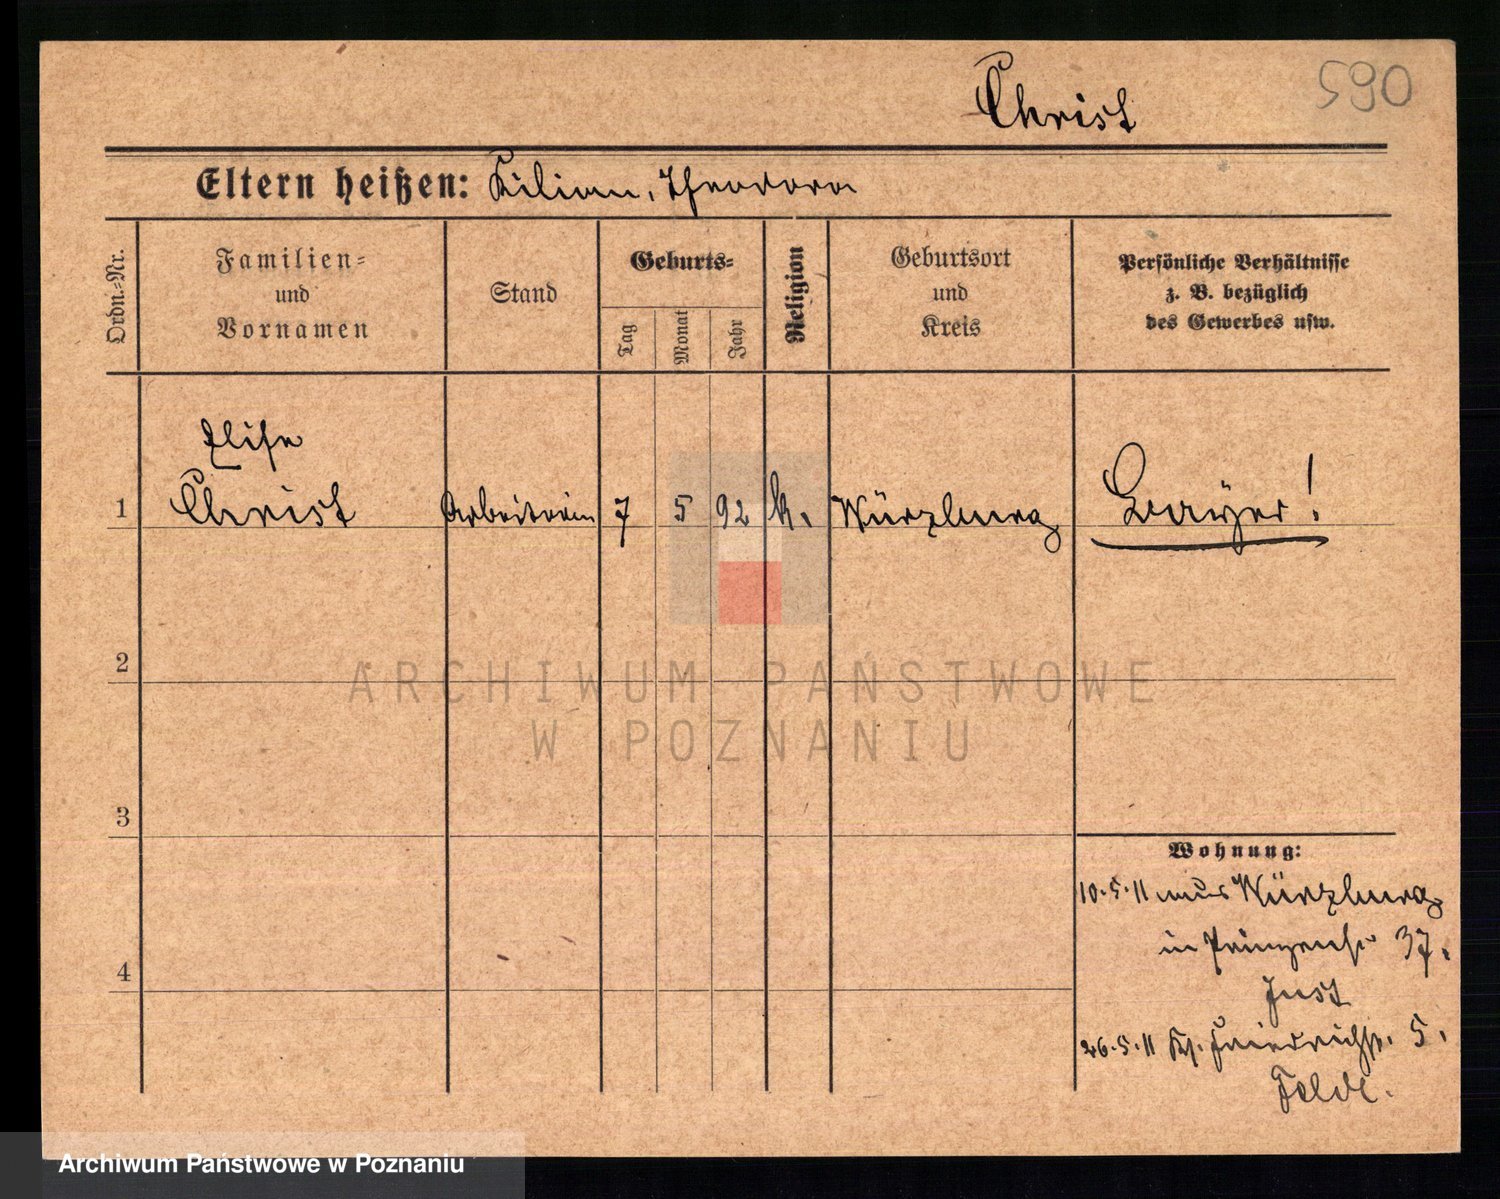 Christ
590
Eltern heißen: Kilian, Theodora
Ordn.-Nr.
Familien-
und
Vornamen
Stand
Geburts-
Tag
Monat
Jahr
Religion
Geburtsort
und
Kreis
Persönliche Verhältnisse
z. B. bezüglich
des Gewerbes usw.
Elise
1 Christ Arbeiterin 7 5 92 k. Würzburg Bayer!
2
3
4
Wohnung:
10.5.11 aus Würzburg
in Prinzenstr 37.
Just
26.5.11 Friedrichstr. 5.
ARCHIWUM PAŃSTWOWE
W POZNANIU
Archiwum Państwowe w Poznaniu